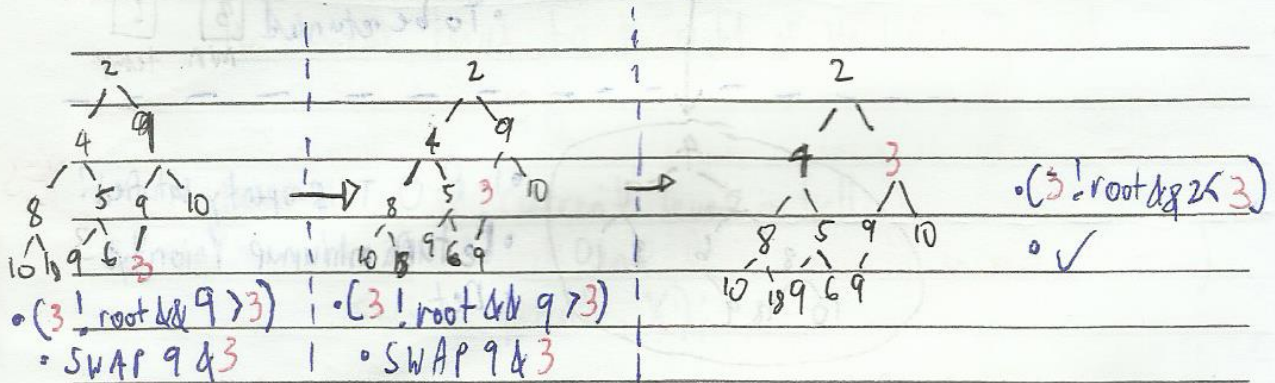 2
4 9
8 5 9 10
10 18 9 6 3
•(3 ! root && 9 > 3)
• SWAP 9 & 3
2
4 9
8 5 3 10
10 18 9 6 9
•(3 ! root && 9 > 3)
• SWAP 9 & 3
2
4 3
8 5 9 10
10 18 9 6 9
•(3 ! root && 2 < 3)
• ✓